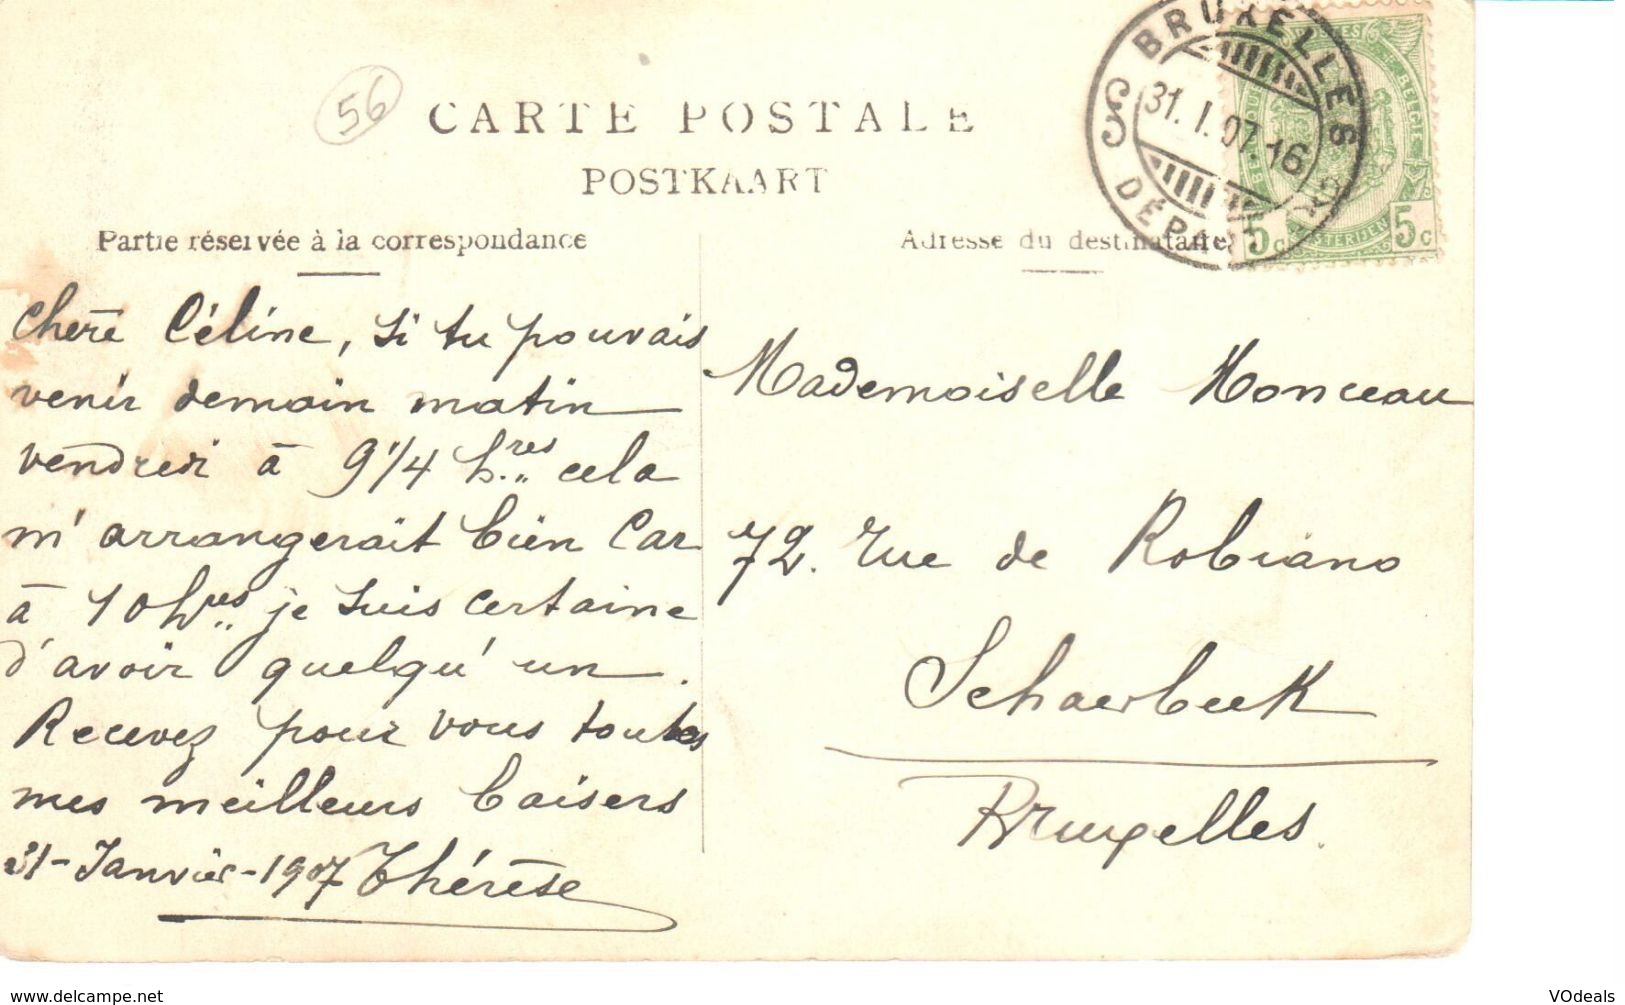 56
CARTE POSTALE
POSTKAART
Partie réservée à la correspondance
Adresse du destinataire
BRUXELLES
31. I. 07 16
DÉPART
5c 5c
Chère Céline, si tu pouvais
venir demain matin
vendredi à 9 1/4 hres cela
m'arrangerait bien car
à 10 hres je suis certaine
d'avoir quelqu'un.
Recevez pour vous toutes
mes meilleurs baisers
31-Janvier-1907 Thérèse
Mademoiselle Monceau
72. Rue de Robiano
Schaerbeek
Bruxelles.
www.delcampe.net
VOdeals